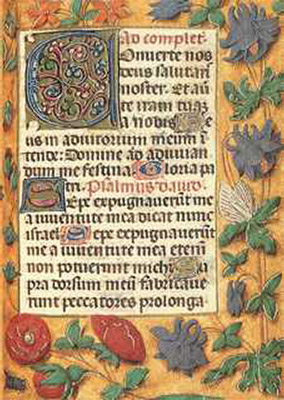 Ad complet.
COnuerte nos
deus salutar̃
noster. Et au̅
te iram tuaz
a nobis De
us in adiutorium meum ī
tende: Domine ad adiuuan
dum me festina Gloria pa
tri. Psalmus dauid.
SEpe expugnauerūt me
a iuuentute mea dicat nunc
israel Sepe expugnauerūt
me a iuuentute mea etenī
non potuerunt michi Su
pra dorsum meū fabricaue
runt peccatores prolonga